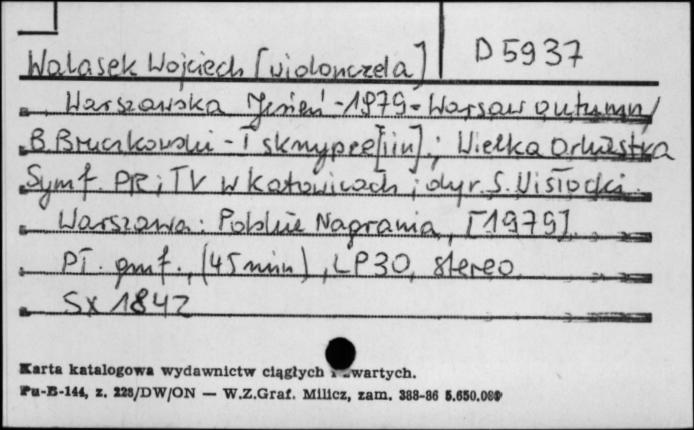 D 5937
Walasek Wojciech [wiolonczela]
Warszawska Jesień - 1979 = Warsaw autumn /
B. Bruczkowski - I skrzypce [iin] ; Wielka Orkiestra
Symf. PR i TV w Katowicach ; dyr. S. Wisłocki.
Warszawa : Polskie Nagrania, [1979].
Pł. gmf., (45 min), LP 30, stereo
SX 1842
Karta katalogowa wydawnictw ciągłych i zwartych.
Pu-B-144, z. 228/DW/ON — W.Z.Graf. Milicz, zam. 388-86 5.650.000